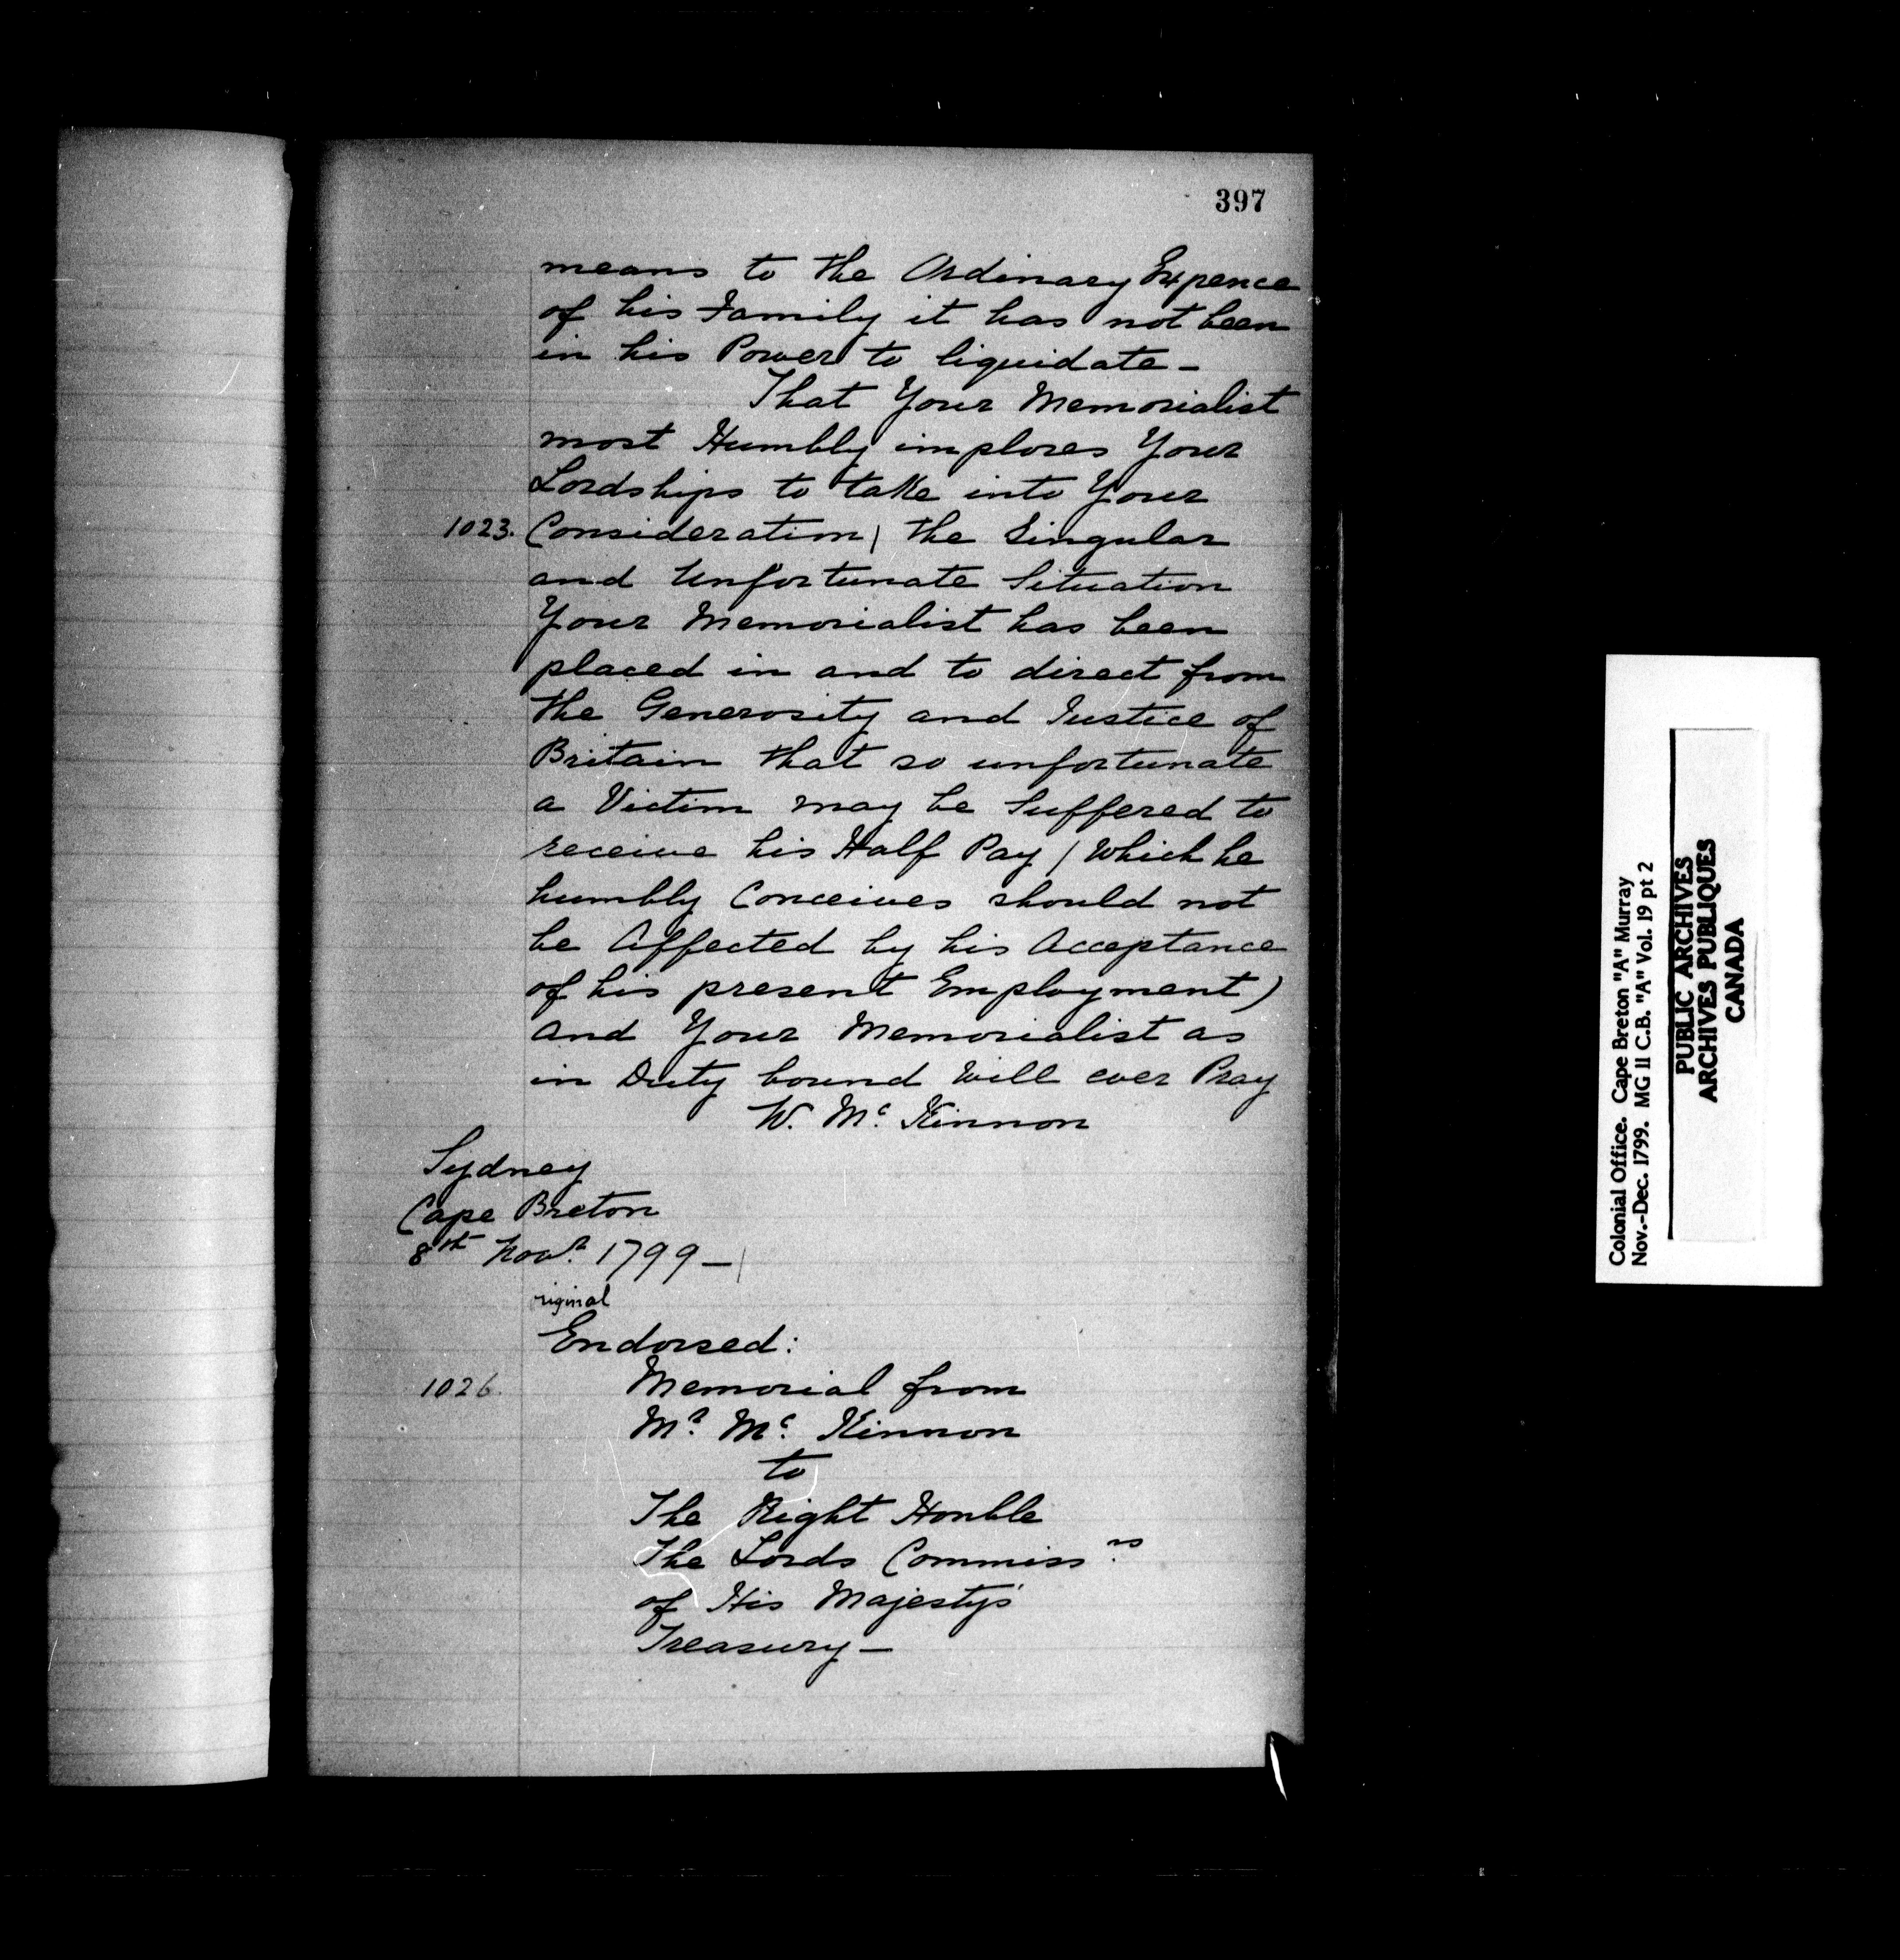 397
means to the Ordinary Expence
of his Family it has not been
in his Power to liquidate -
That Your Memorialist
most Humbly implores Your
Lordships to take into Your
1023. Consideration | the Singular
and Unfortunate Situation
Your Memorialist has been
placed in and to direct from
the Generosity and Justice of
Britain that so unfortunate
a Victim may be Suffered to
receive his Half Pay ( Which he
humbly Conceives should not
be Affected by his Acceptance
of his present Employment )
and Your Memorialist as
in Duty bound Will ever Pray
W. Mc. Kinnon
Sydney
Cape Breton
8th Novr. 1799 - |
riginal
Endorsed:
1026. Memorial from
Mr. Mc. Kinnon
to
The Right Honble
The Lords Commissrs.
of His Majesty's
Treasury -
Colonial Office. Cape Breton "A" Murray
Nov.-Dec. 1799. MG 11 C.B. "A" Vol. 19 pt 2
PUBLIC ARCHIVES
ARCHIVES PUBLIQUES
CANADA